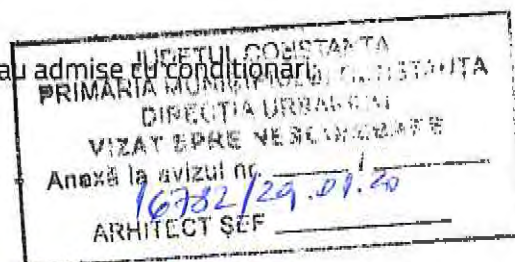 au admise cu condiționări:
JUDEȚUL CONSTANȚA
PRIMĂRIA MUNICIPIULUI CONSTANȚA
DIRECȚIA URBANISM
VIZAT SPRE NESCHIMBARE
Anexă la avizul nr. ______/______
16782/29.01.20
ARHITECT ȘEF ______